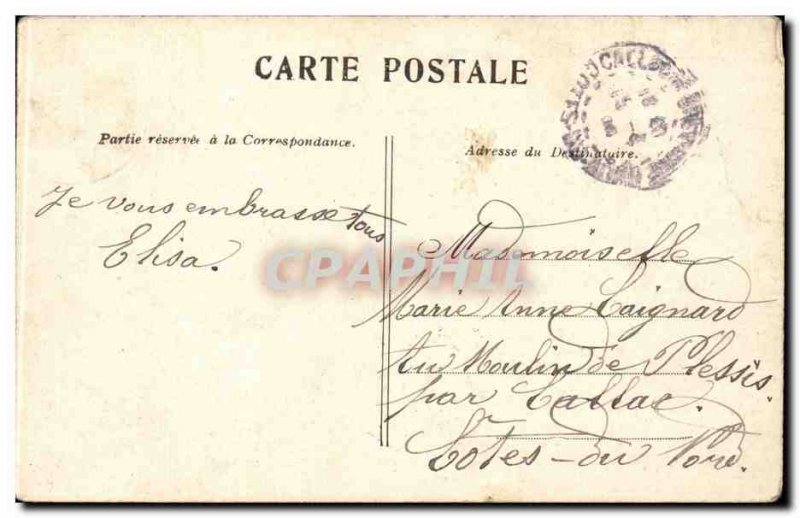 CARTE POSTALE
Partie réservée à la Correspondance.
Adresse du Destinataire.
Je vous embrasse tous
Elisa.
Mademoiselle
Marie Anne Caignard
Au Moulin de Plessis.
par Callac.
Côtes-du Nord.
CPAPHIL